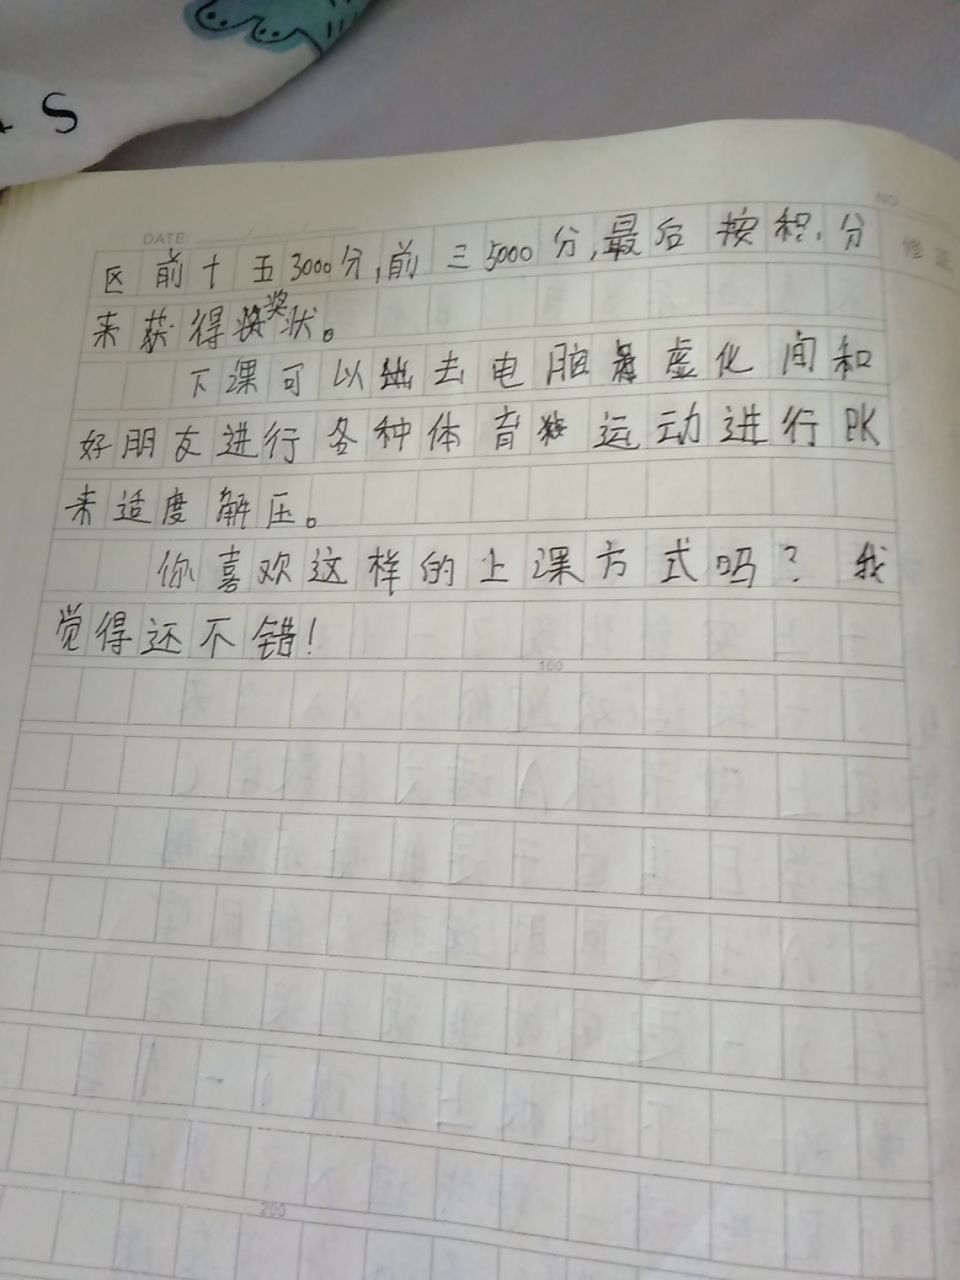 S
NO
DATE:
修正
区前十五3000分,前三5000分,最后按积分
来获得奖状。
下课可以去电脑虚化间和
好朋友进行各种体育运动进行PK
来适度解压。
你喜欢这样的上课方式吗？我
觉得还不错！
100
200